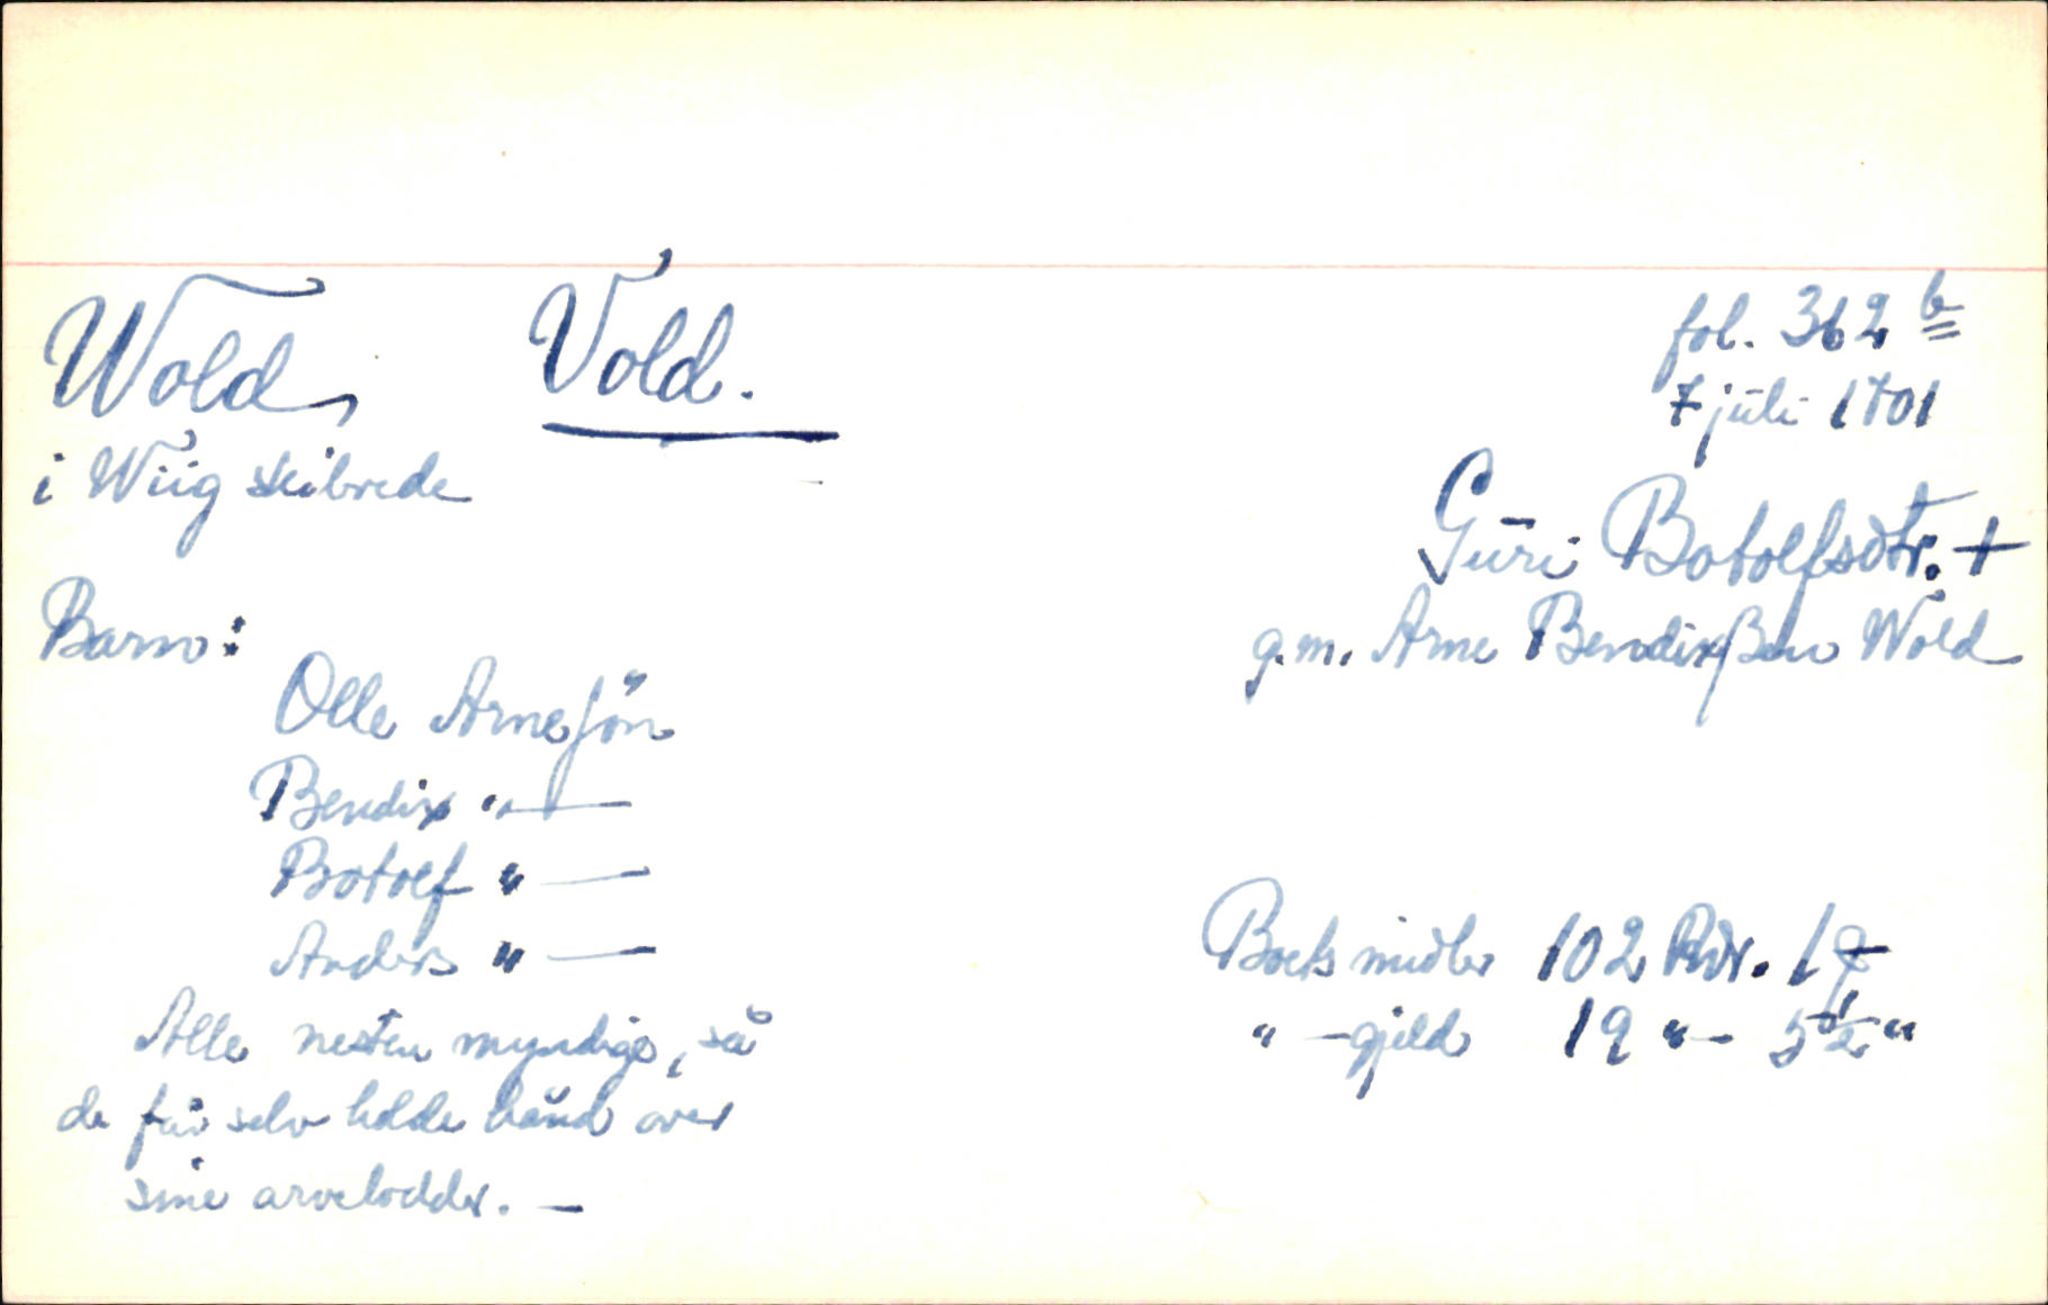 Wold, Vold.
fol. 362 b
7 juli 1701
i Wiig skibrede
Guri Botolfsdtr. +
g. m. Arne Bendixßen Wold
Barn:
Olle Arnesön
Bendix " —
Botolf " —
Anders " —
Alle nesten myndige, så
de får selv holde hånd over
sine arvelodder. —
Boets midler 102 Rdr. 1
" - gjeld 19 " - 5 1/2 "